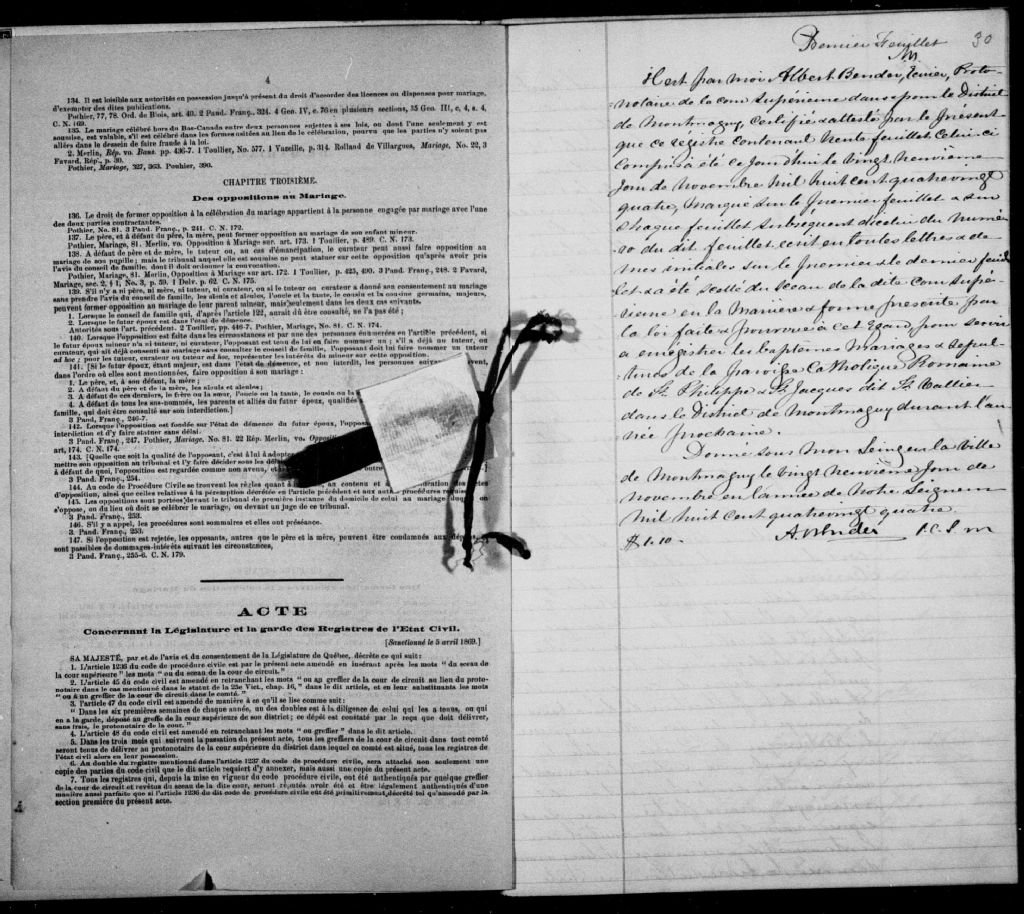 4
134. Il est loisible aux autorités en possession jusqu'à présent du droit d'accorder des licences ou dispenses pour mariage,
d'exempter des dites publications.
Pothier, 77, 78. Ord. de Blois, art. 40. 2 Pand. Franç., 324. 4 Geo. IV, c. 76 en plusieurs sections, 35 Geo. III, c, 4, s. 4,
C. N. 169.
135. Le mariage célébré hors du Bas-Canada entre deux personnes sujettes à ses lois, ou dont l'une seulement y est
soumise, est valable, s'il est célébré dans les formes usitées au lieu de la célébration, pourvu que les parties n'y soient pas
allées dans le dessein de faire fraude à la loi.
2. Merlin, Rép. vo. Bans. pp. 436-7. 1 Toullier, No. 577. 1 Vazeille, p. 314. Rolland de Villargues, Mariage, No. 22, 3
Favard, Rép., p. 30.
Pothier, Mariage, 327, 363. Pouhier, 390.
CHAPITRE TROISIÈME.
Des oppositions au Mariage.
136. Le droit de former opposition à la célébration du mariage appartient à la personne engagée par mariage avec l'une
des deux parties contractantes.
Pothier, No. 81. 3 Pand. Franç., p. 241. C. N. 172.
137. Le père, et à défaut du père, la mère, peut former opposition au mariage de son enfant mineur.
Pothier, Mariage, 81. Merlin, vo. Opposition à Mariage sur. art. 173. 1 Toullier, p. 489. C. N. 173.
138. A défaut de père et de mère, le tuteur ou, au cas d'émancipation, le curateur peut aussi faire opposition au
mariage de son pupille; mais le tribunal auquel elle est soumise ne peut statuer sur cette opposition qu'après avoir pris
l'avis du conseil de famille, dont il doit ordonner la convocation.
Pothier, Mariage, 81. Merlin, Opposition à Mariage sur art. 172. 1 Toullier, p. 425, 490. 3 Pand. Franç., 248. 2 Favard,
Mariage, sec. 2, § 1, No. 3, p. 59. 1 Delv. p. 62. C. N. 175.
139. S'il n'y a ni père, ni mère, ni tuteur, ni curateur, ou si le tuteur ou curateur a donné son consentement au mariage
sans prendre l'avis du conseil de famille, les aïeuls et aïeules, l'oncle et la tante, le cousin et la cousine germains, majeurs,
peuvent former opposition au mariage de leur parent mineur, mais seulement dans les deux cas suivants:
1. Lorsque le conseil de famille qui, d'après l'article 122, aurait dû être consulté, ne l'a pas été;
2. Lorsque le futur époux est dans l'état de démence.
Autorités sous l'art. précédent. 2 Toullier, pp. 446-7. Pothier, Mariage, No. 81. C. N. 174.
140. Lorsque l'opposition est faite dans les circonstances et par une des personnes énumérées en l'article précédent, si
le futur époux mineur n'a ni tuteur, ni curateur, l'opposant est tenu de lui en faire nommer un; s'il a déjà un tuteur, ou
curateur, qui ait déjà consenti au mariage sans consulter le conseil de famille, l'opposant doit lui faire nommer un tuteur
ad hoc; pour les tuteur, curateur ou tuteur ad hoc, représenter les intérêts du mineur sur cette opposition.
141. [Si le futur époux, étant majeur, est dans l'état de démence, et non interdit, les personnes
dans l'ordre où elles sont mentionnées, faire opposition à son mariage:
1. Le père, et, à son défaut, la mère;
2. A défaut du père et de la mère, les aïeuls et aïeules;
3. A défaut de ces derniers, le frère ou la sœur, l'oncle ou la tante, le cousin ou la
4. A défaut de tous les sus-nommés, les parents et alliés du futur époux, qualifiés
famille, qui doit être consulté sur son interdiction.]
3 Pand. Franç., 246-7.
142. Lorsque l'opposition est fondée sur l'état de démence du futur époux, l'opposant
interdiction et d'y faire statuer sans délai.
3 Pand. Franç., 247. Pothier, Mariage, No. 81. 22 Rép. Merlin, vo. Opposition
art, 174. C. N. 174.
143. [Quelle que soit la qualité de l'opposant, c'est à lui à adopter
mettre son opposition au tribunal et l'y faire décider sous les délais
à défaut de quoi, l'opposition est regardée comme non avenu, et
3 Pand. Franç., 254.
144. Au code de Procédure Civile se trouvent les règles quant à au contenu et
d'opposition, ainsi que celles relatives à la péremption décrétée en l'article précédent et aux autres procédures requises
145. Les oppositions sont portées devant le tribunal de première instance du domicile de celui au mariage duquel on
s'oppose, ou du lieu où doit se célébrer le mariage, ou devant un juge de ce tribunal.
3 Pand. Franç., 253.
146. S'il y a appel, les procédures sont sommaires et elles ont préséance.
3 Pand. Franç., 253.
147. Si l'opposition est rejetée, les opposants, autres que le père et la mère, peuvent être condamnés aux dépens
sont passibles de dommages-intérêts suivant les circonstances,
3 Pand. Franç., 255-6. C. N. 179.
ACTE
Concernant la Législature et la garde des Registres de l'Etat Civil.
[Sanctionné le 5 avril 1869.]
SA MAJESTÉ, par et de l'avis et du consentement de la Législature de Québec, décrète ce qui suit:
1. L'article 1236 du code de procédure civile est par le présent acte amendé en insérant après les mots "du sceau de
la cour supérieure" les mots "ou du sceau de la cour de circuit."
2. L'article 45 du code civil est amendé en retranchant les mots "ou au greffier de la cour de circuit au lieu du proto-
notaire dans le cas mentionné dans le statut de la 25e Vict., chap. 16," dans le dit article, et en leur substituants les mots
"ou à un greffier de la cour de circuit dans le comté."
3. l'article 47 du code civil est amendé de manière à ce qu'il se lise comme suit:
"Dans les six premières semaines de chaque année, un des doubles est à la diligence de celui qui les a tenus, ou qui
en a la garde, déposé au greffe de la cour supérieure de son district; ce dépôt est constaté par le reçu que doit délivrer,
sans frais, le protonotaire de la cour."
4. L'article 48 du code civil est amendé en retranchant les mots "ou greffier" dans le dit article.
5. Dans les trois mois qui suivront la passation du présent acte, tous les greffiers de la cour de circuit dans tout comté
seront tenus de délivrer au protonotaire de la cour supérieure du district dans lequel ce comté est situé, tous les registres de
l'état civil alors en leur possession.
6. Au double du registre mentionné dans l'article 1237 du code de procédure civile, sera attaché non seulement une
copie des parties du code civil que le dit article requiert d'y annexer, mais aussi une copie du présent acte.
7. Tous les registres qui, depuis la mise en vigueur du code procédure civile, ont été authentiqués par quelque greffier
de la cour de circuit et revêtus du sceau de la dite cour, seront réputés avoir été et être légalement authentiqués d'une
manière aussi parfaite que si l'article 1236 du dit code de procédure civile eût été primitivement décrété tel qu'amendé par la
section première du présent acte.
Premier Feuillet 30
Il est par moi Albert Bender, Ecuier, Proto-
notaire de la cour Supérieure dans & pour le District
de Montmagny, Certifié & attesté par le présent
que ce régistre contenant trente feuillets celui-ci
compris a été ce jourd'hui le vingt neuvième
jour de Novembre mil huit cent quatrevingt
quatre, marqué sur le premier feuillet & sur
chaque feuillet subsequent d'icelui du numé-
ro du dit feuillet écrit en toutes lettres & de
mes initiales sur le premier & le dernier feuil-
let & a été scellé du sceau de la dite cour Supé-
rieure en la manière & forme prescrite par
la loi faite & pourvue à cet Egard pour servir
a enrégistrer les baptêmes Mariages & Sépul-
tures de la paroisse Catholique Romaine
de St. Philippe & St. Jacques dit St. Vallier
dans le District de Montmagny durant l'an-
née prochaine.
Donné sous mon Seing en la Ville
de Montmagny le vingt neuvième jour de
novembre en l'année de notre Seigneur
mil huit cent quatrevingt quatre.
$1.10 A. Bender P. C. S. M